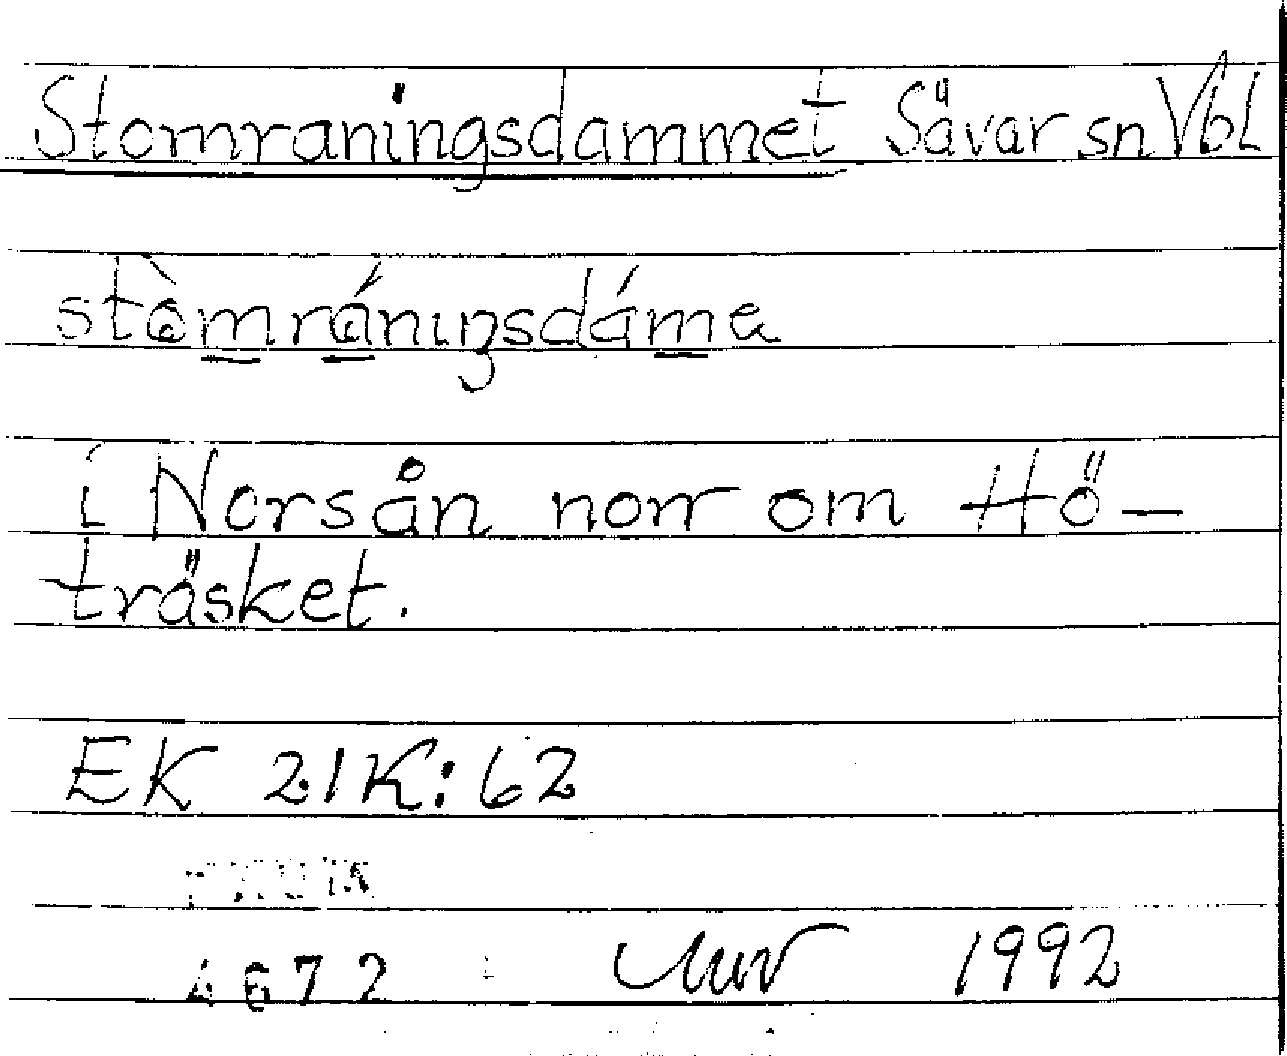 Stomraningsdammet Sävar sn Vbl
stòmráningsdáma
i Norsån norr om Hö-
träsket.
EK 21K:62
4672 1992